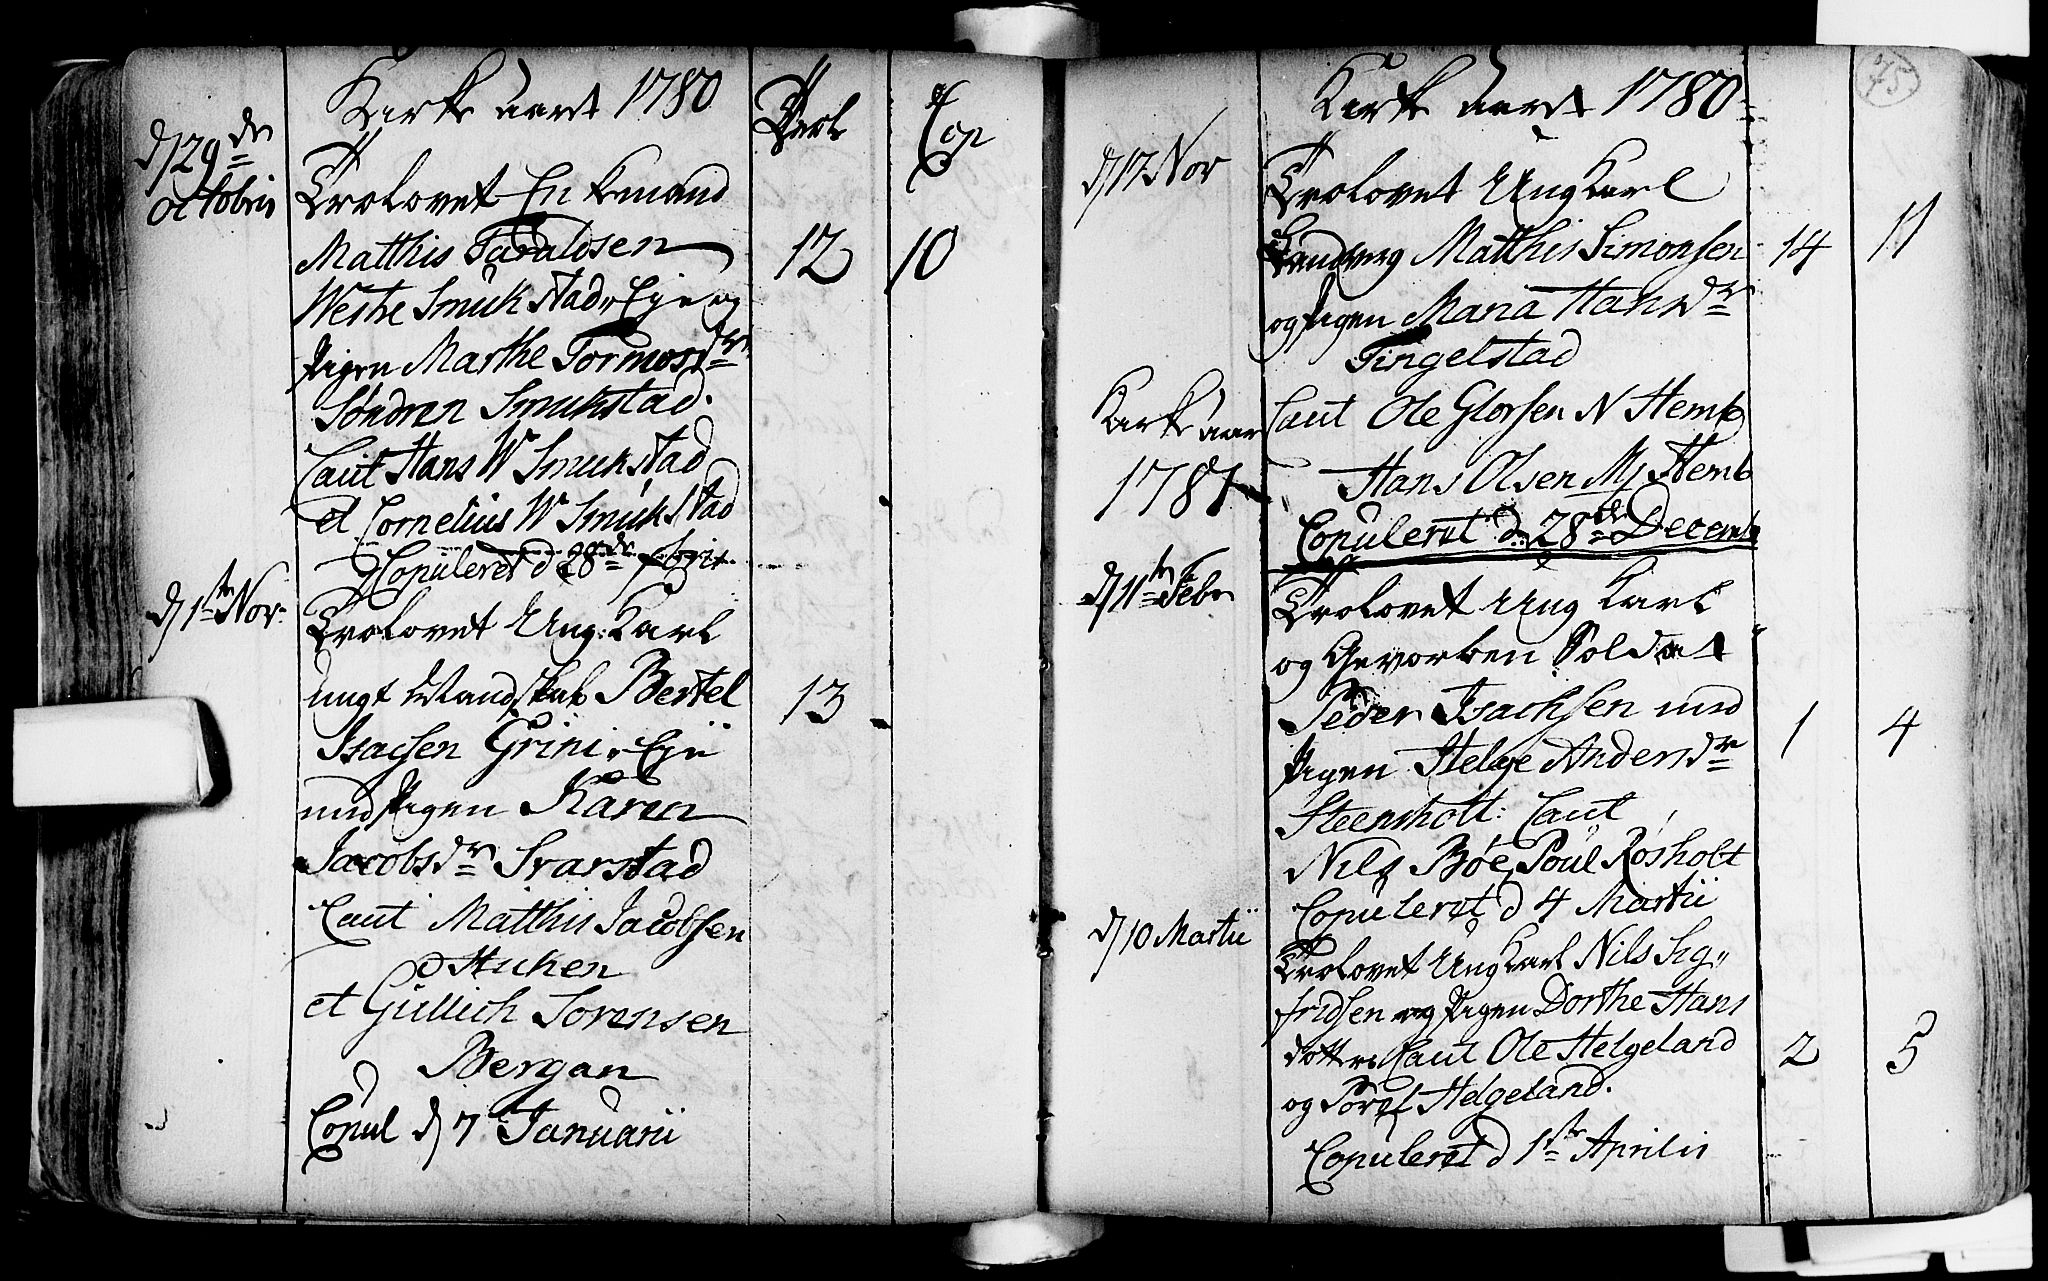 Kirke aaret 1780
Trol
Cop
d 29de
octobris
Trolovet Enkemand
Matthis Taraldsen
12
10
Westre Smukstad Eje og
Pigen Marthe Tormosdr
Søndren Smukstad.
Caut Hans W Smukstad
et Cornelius W Smukstad
Copuleret d 28de
d 1ste Nov:
Trolovet Ung: Karl
ungt Bertel
13
Isacsen Grini Eje
med Pigen Karen
Jacobsdr Svarstad
Caut Matthis Jacobsen
Huken
et Gullich Sorensen
Bergan
Copul d 7 Januarii
75
Kirke Aaret 1780
d 17 Nov
Trolovet Ung Karl
Matthis Simonsen
14
11
og Pigen Maria Hansdr
Tingelstad
Caut Ole Glorsen N Hemb
Kirke aar
1781
Hans Olsen M Hemb
Copuleret d 28de Decemb
d 11te Febr
Trolovet Ung Karl
og Gevorben Soldat
Peder Isachsen med
1
4
Pigen Helge Andersdr
Steensholt: Caut
Nils Bøe, Poul Røsholt
Copuleret d 4 Martii
d 10 Martii
Trolovet Ung Karl Nils Sig„
fridsen og Pigen Dorthe Hans
dotter Caut Ole Helgeland
2
5
og Helgeland.
Copuleret d 1ste Aprilis